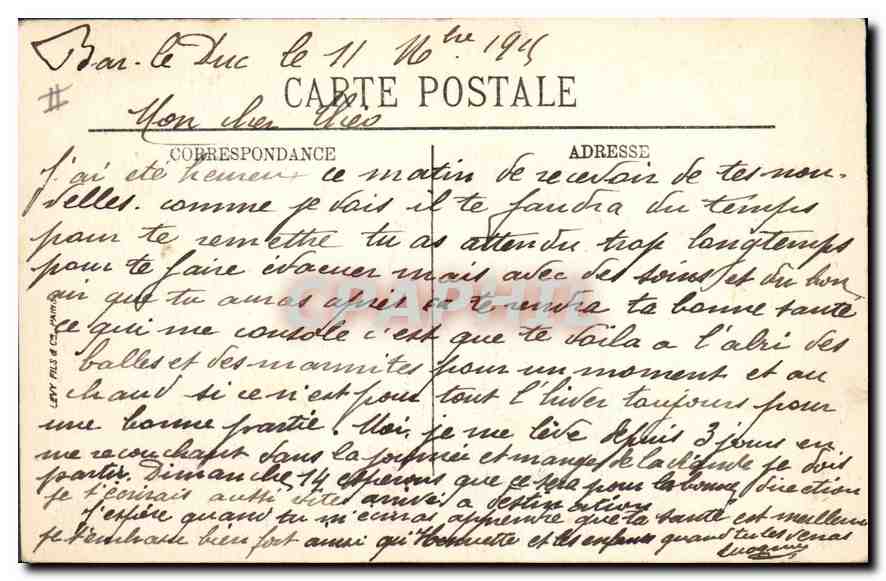 Bar-le Duc le 11 Nbre 1915
CARTE POSTALE
Mon cher Théo
CORRESPONDANCE
ADRESSE
J'ai été heureux ce matin de recevoir de tes nou-
velles. comme je vois il te faudra du temps
pour te remettre tu as attendu trop longtemps
pour te faire évacuer mais avec des soins et du bon
air que tu auras après ça te rendra ta bonne santé
ce qui me console c'est que te voila a l'abri des
balles et des marmites pour un moment et au
chaud si ce n'est pour tout l'hiver toujours pour
une bonne partie. Moi, je me lève depuis 3 jours en
me recouchant dans la journée et mange de la viande je dois
partir Dimanche 14 esperons que ce sera pour la bonne direction
je t'écrirais aussi vite arrivé a destination
J'espère quand tu m'écriras apprendre que ta santé est meilleure
je t'embrasse bien fort ainsi qu'Henriette et les enfants quand tu les verras
LEVY FILS & Co, PARIS
CPAPHIL